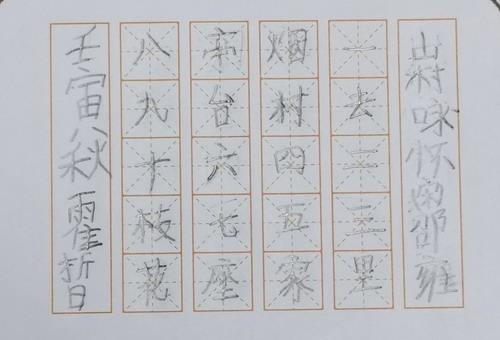 山村咏怀邵雍
一去二三里
烟村四五家
亭台六七座
八九十枝花
壬寅秋霍晢